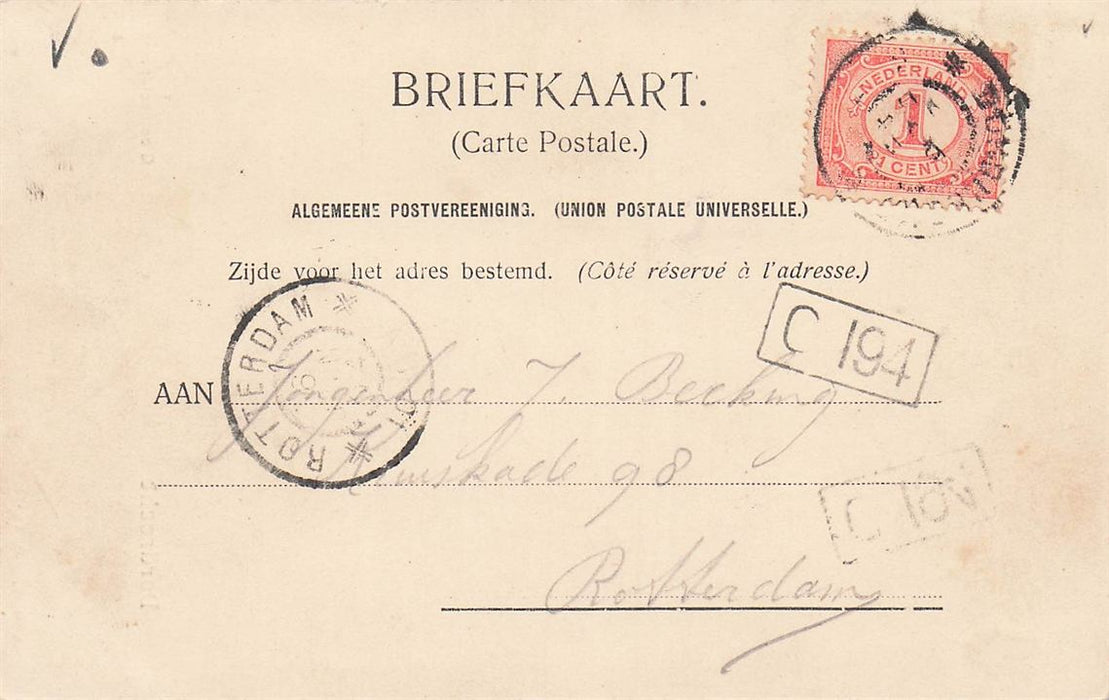 V.
BRIEFKAART.
(Carte Postale.)
NEDERLAND
1
1 CENT
ALGEMEENE POSTVEREENIGING. (UNION POSTALE UNIVERSELLE.)
Zijde voor het adres bestemd. (Côté réservé à l'adresse.)
ROTTERDAM
C 194
AAN Jongenheer J. Becking
98
C 10V
Rotterdam